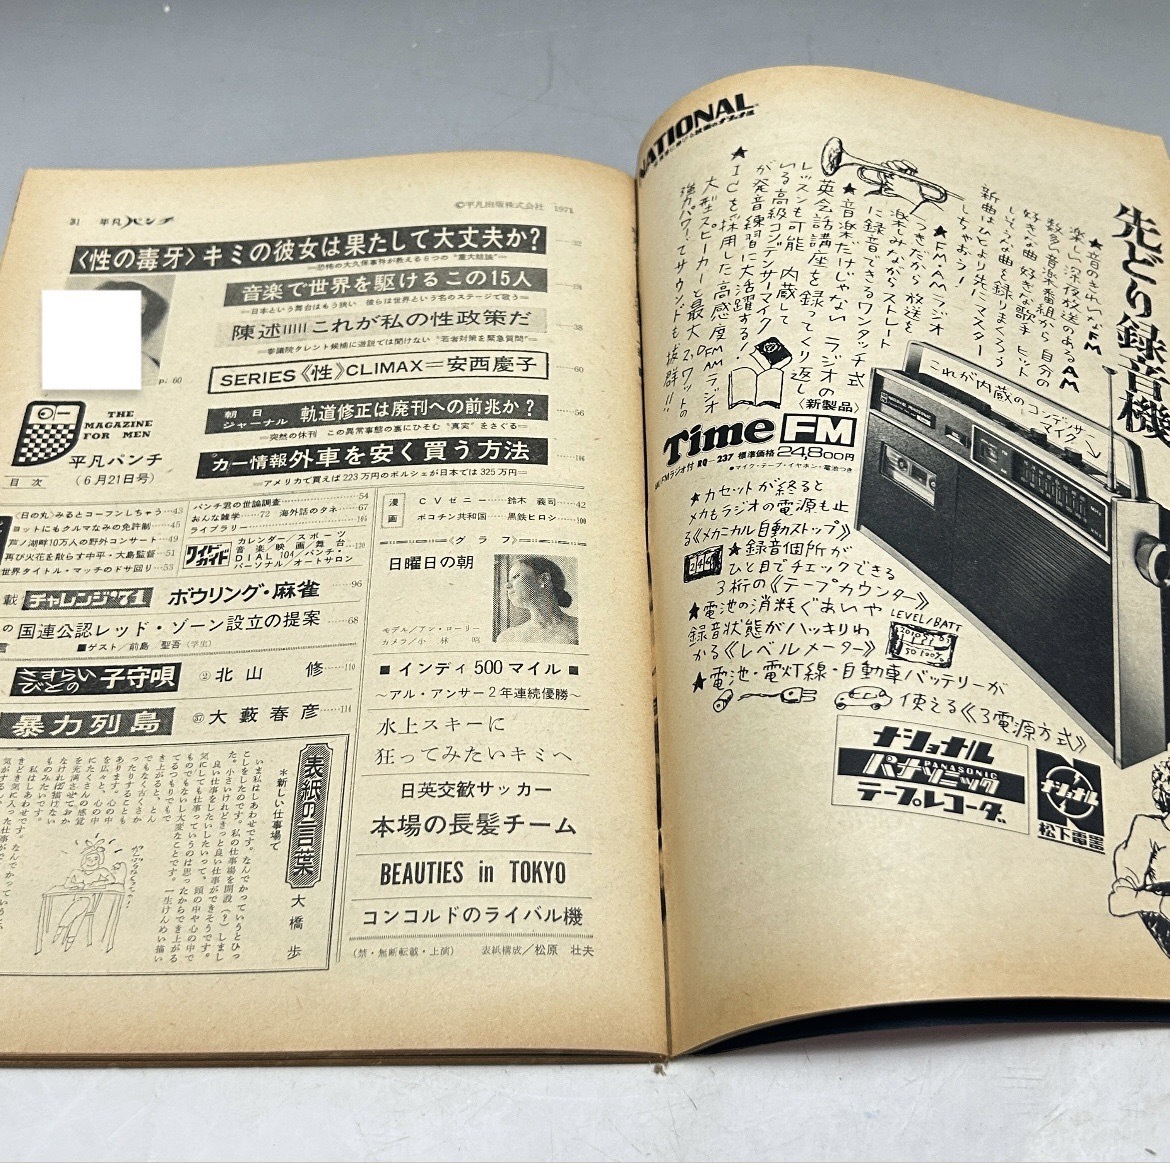 ©平凡出版株式会社 1971
平凡パンチ
〈性の毒牙〉キミの彼女は果たして大丈夫か? 32
=恐怖の大久保事件が教える6つの“重大結論”=
音楽で世界を駆けるこの15人
=日本という舞台はもう狭い 彼らは世界という名のステージで歌う=
陳述これが私の性政策だ 38
=参議院タレント候補に遊説では聞けない“若者対策を緊急質問”=
SERIES《性》CLIMAX=安西慶子 60
p. 60
朝日ジャーナル 軌道修正は廃刊への前兆か? 56
=突然の休刊 この異常事態の裏にひそむ“真実”をさぐる=
カー情報外車を安く買う方法 106
=アメリカで買えば223万円のポルシェが日本では325万円=
THE
MAGAZINE
FOR MEN
平凡パンチ
目次 (6月21日号)
〈日の丸〉みるとコーフンしちゃう 43
ヨットにもクルマなみの免許制 45
芦ノ湖畔10万人の野外コンサート 49
再び火花を散らす中平・大島監督 51
世界タイトル・マッチのドサ回り 53
パンチ君の世論調査 54
おんな雑学 72 海外話のタネ 67
ライブラリー 104
ワイドガイド
カレンダー/スポーツ
音楽/映画/舞台 120
DIAL 104/パンチ・
パーソナル/オートサロン
載 チャレンジ'71 ボウリング・麻雀 96
の 国連公認レッド・ゾーン設立の提案 68
■ゲスト/前島 聖吾(学生)
さすらいびとの子守唄 ② 北山 修 110
暴力列島 ㊲ 大藪春彦 114
表紙の言葉
大橋 歩
*新しい仕事場て
いま私はしあわせです。なんでかっていうとひっ
こしをしたのです。私の仕事場を開設(?)しまし
た。小さいけれどきっと良い仕事ができそうです。
良い仕事をしたいしたいって、頭の中や心の中で
気にしても仕事っていうのは思ったからでき上がる
ものでもないし大変なことです。一生けんめい描い
漫画
CVゼニー 鈴木 義司 42
ポコチン共和国 黒鉄ヒロシ 100
〈グラフ〉
日曜日の朝
モデル/アン・ローリー
カメラ/小林 昭
■インディ500マイル■
〜アル・アンサー2年連続優勝〜
水上スキーに
狂ってみたいキミへ
日英交歓サッカー
本場の長髪チーム
BEAUTIES in TOKYO
コンコルドのライバル機
(禁・無断転載・上演) 表紙構成/松原 壮夫
NATIONAL
先どり録音機
★音のきれいなFM
楽しい深夜放送のあるAM
数多い音楽番組から 自分の
好きな曲 好きな歌手 ヒット
しそうな曲を録りまくろう
新曲はひとより先にマスター
しちゃおう!
★FM・AMラジオ
つきだから 放送を
楽しみながらストレート
に録音できるワンタッチ式
★音楽だけじゃない ラジオの
英会話講座を録ってくり返し
レッスンも可能 内蔵して
いる高級コンデンサーマイク
が発音練習に大活躍する!
★ICを採用した高感度FM・AMラジオ
大型スピーカーと最大2ワットの
強力パワーでサウンドも抜群!!
これが内蔵のコンデンサーマイク
〈新製品〉
Time FM
FMラジオ付 RQ-237 標準価格 24,800円
●マイク・テープ・イヤホン・電池つき
★カセットが終ると
メカもラジオの電源も止
る《メカニカル自動ストップ》
★録音個所が
ひと目でチェックできる
3桁の《テープカウンター》
★電池の消耗ぐあいや
録音状態がハッキリわ
かる《レベルメーター》
LEVEL/BATT
★電池・電灯線・自動車バッテリーが
使える《3電源方式》
ナショナル
パナソニック
PANASONIC
テープレコーダー
ナショナル
松下電器